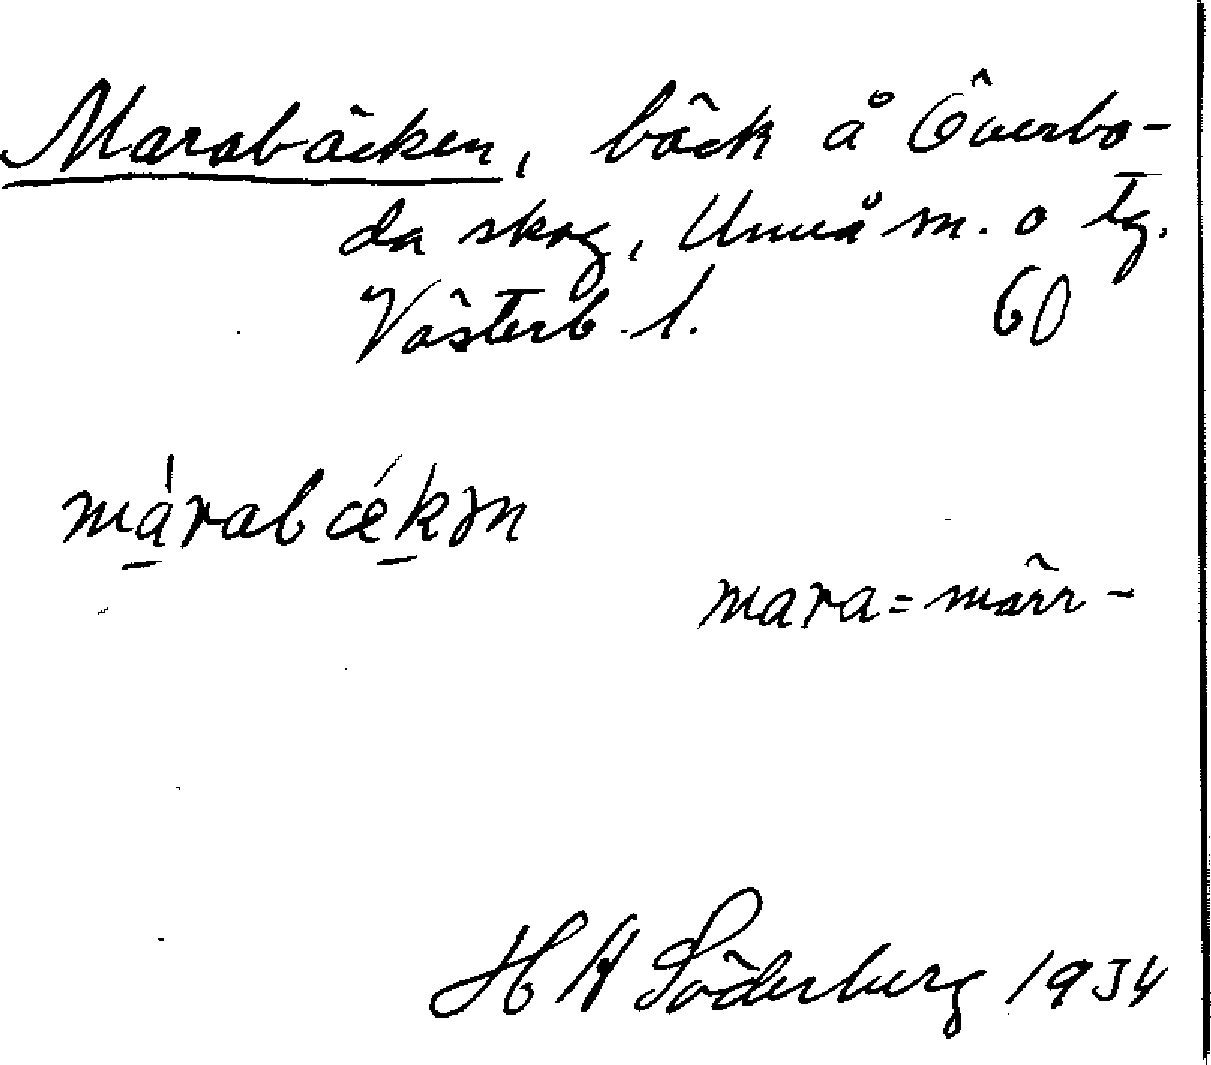 Marabäcken, bäck å Överbo-
da skog, Umeå m. o tg.
Västerb. l. 60
márabǽkən
mara = märr-
H A Söderberg 1934